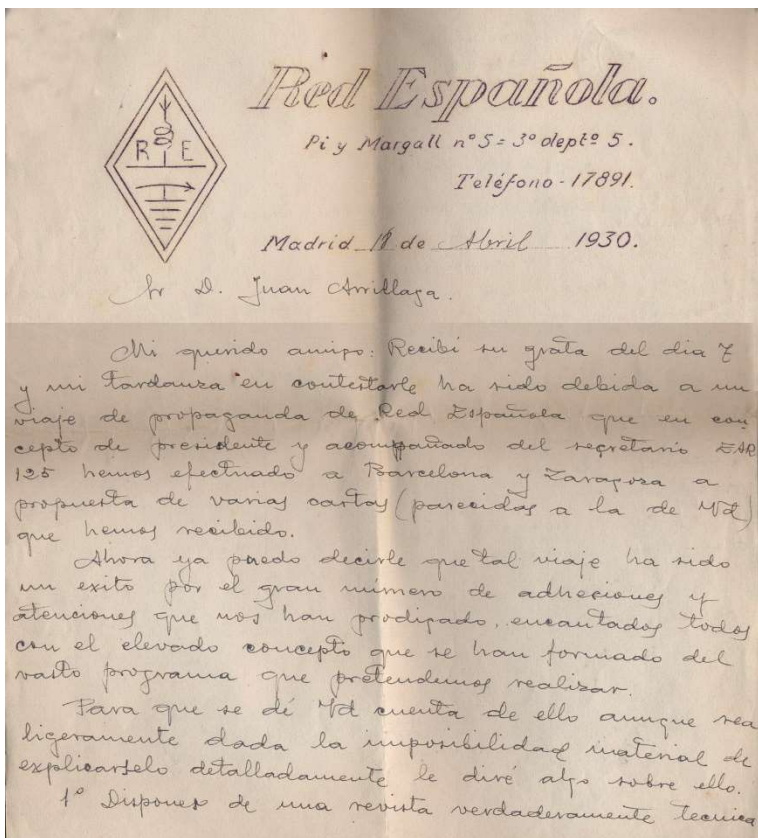 Red Española.
R E
Pi y Margall nº 5 = 3º deptº 5.
Teléfono - 17891.
Madrid de Abril 1930.
Sr D. Juan Arrillaga.
Mi querido amigo: Recibi su grata del dia 7
y mi tardanza en contestarle ha sido debida a un
viaje de propaganda de Red Española que en con
cepto de presidente y acompañado del secretario EAR
125 hemos efectuado a Barcelona y Zaragoza a
propuesta de varias cartas (parecidas a la de Vd)
que hemos recibido.
Ahora ya puedo decirle que tal viaje ha sido
un exito por el gran número de adhesiones y
atenciones que nos han prodigado, encantados todos
con el elevado concepto que se han formado del
vasto programa que pretendemos realizar.
Para que se dé Vd cuenta de ello aunque sea
ligeramente dada la imposibilidad material de
explicarselo detalladamente le diré algo sobre ello.
1º Disponer de una revista verdaderamente tecnica